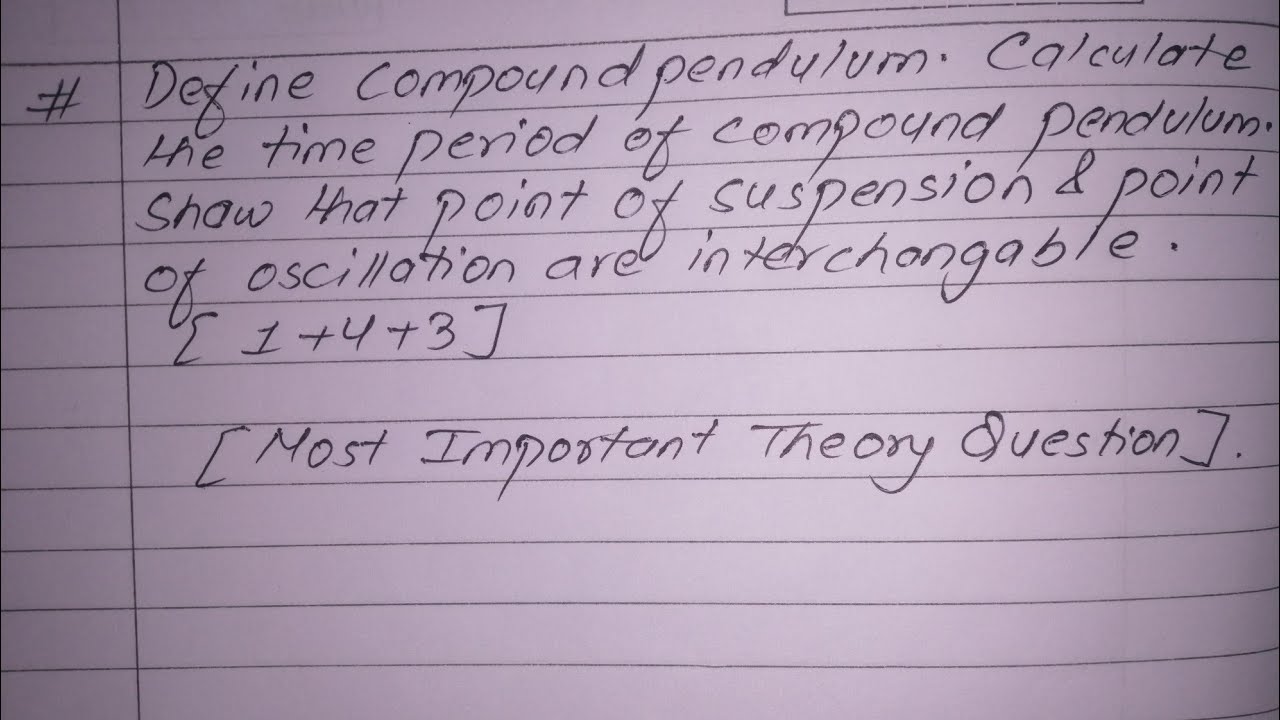 # Define compound pendulum. Calculate
the time period of compound pendulum.
Show that point of suspension & point
of oscillation are interchangable.
[ 1+4+3 ]
[ Most Important Theory Question ].